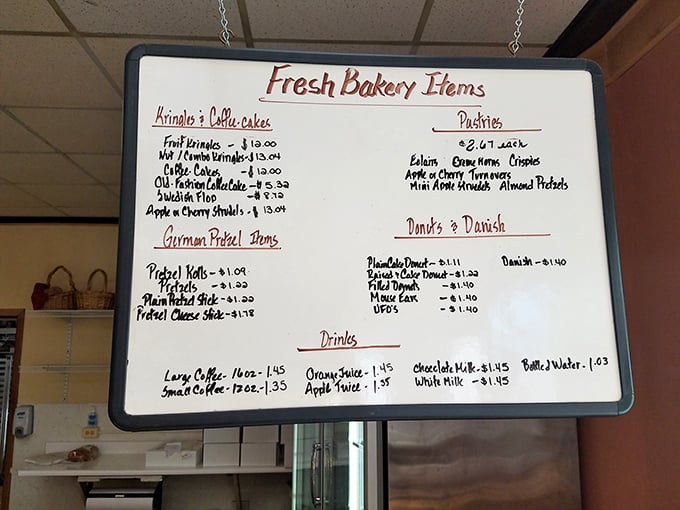 Fresh Bakery Items
Kringles & Coffee-cakes
Fruit Kringles - $12.00
Nut / Combo Kringles - $13.04
Coffee-Cakes - $12.00
Old-Fashion Coffee Cake - $5.32
Swedish Flop - $8.72
Apple or Cherry Strudels - $13.04
German Pretzel Items
Pretzel Rolls - $1.09
Pretzels - $1.22
Plain Pretzel Stick - $1.22
Pretzel Cheese Stick - $1.78
Pastries
$2.67 each
Eclairs Creme Horns Crispies
Apple or Cherry Turnovers
Mini Apple Strudels Almond Pretzels
Donuts & Danish
Plain Cake Donut - $1.11 Danish - $1.40
Raised & Cake Donut - $1.22
Filled Donuts - $1.40
Mouse Ears - $1.40
UFO's - $1.40
Drinks
Large Coffee - 16oz - 1.45 Orange Juice - 1.45 Chocolate Milk - $1.45 Bottled Water - 1.03
Small Coffee - 12oz. - 1.35 Apple Juice - 1.35 White Milk - $1.45